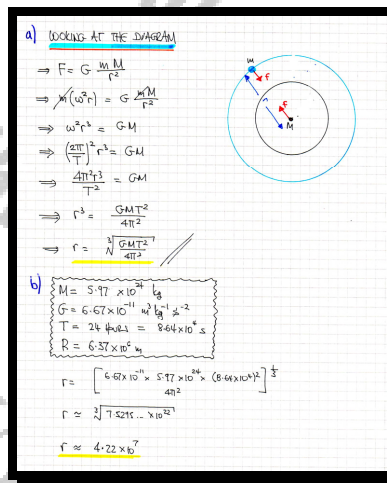 a) LOOKING AT THE DIAGRAM
⇒ F = G mM/r²
⇒ m(ω²r) = G mM/r²
⇒ ω²r³ = GM
⇒ (2π/T)² r³ = GM
⇒ 4π²r³/T² = GM
⇒ r³ = GMT²/4π²
⇒ r = ∛(GMT²/4π²)
m
F
r
F
M
b) M = 5.97 × 10²⁴ kg
G = 6.67 × 10⁻¹¹ m³ kg⁻¹ s⁻²
T = 24 HOURS = 8.64 × 10⁴ s
R = 6.37 × 10⁶ m
r = [6.67 × 10⁻¹¹ × 5.97 × 10²⁴ × (8.64 × 10⁴)² / 4π²]^⅓
r ≈ ∛(7.5295... × 10²²)
r ≈ 4.22 × 10⁷